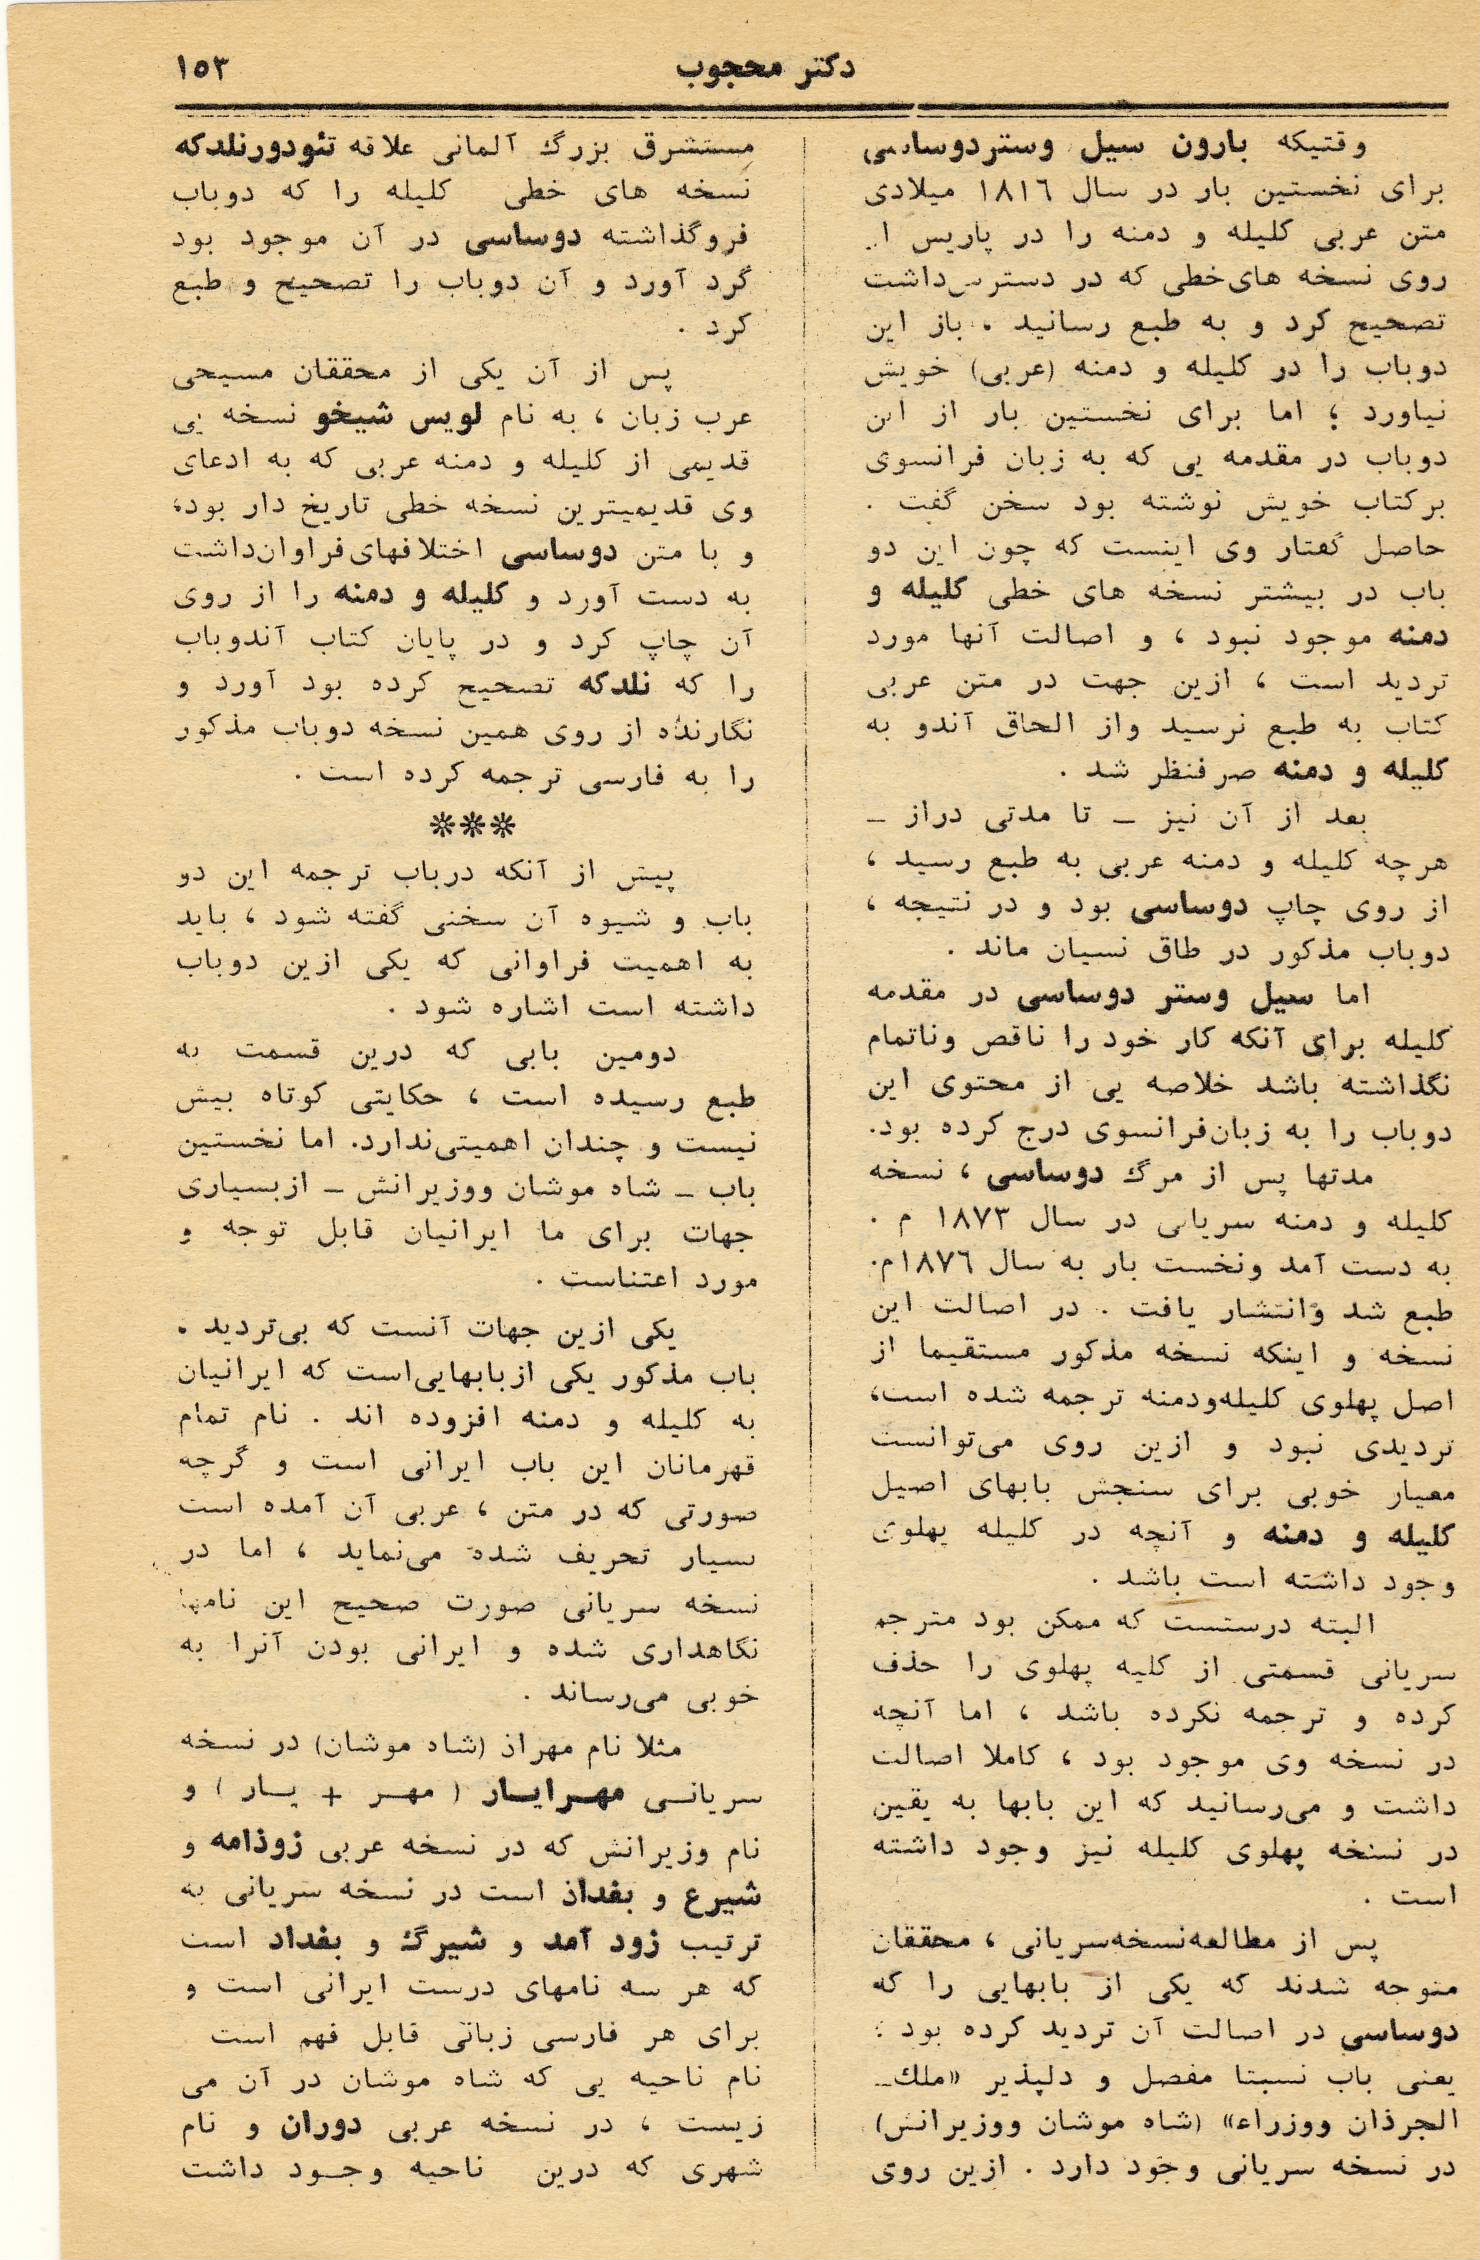 دکتر محجوب
۱۵۳
وقتیکه بارون سیل وستردوساسی
برای نخستین بار در سال ۱۸۱۶ میلادی
متن عربی کلیله و دمنه را در پاریس از
روی نسخه های‌خطی که در دسترس‌داشت
تصحیح کرد و به طبع رسانید ، باز این
دوباب را در کلیله و دمنه (عربی) خویش
نیاورد ؛ اما برای نخستین بار از این
دوباب در مقدمه یی که به زبان فرانسوی
برکتاب خویش نوشته بود سخن گفت .
حاصل گفتار وی اینست که چون این دو
باب در بیشتر نسخه های خطی کلیله و
دمنه موجود نبود ، و اصالت آنها مورد
تردید است ، ازین جهت در متن عربی
کتاب به طبع نرسید واز الحاق آندو به
کلیله و دمنه صرفنظر شد .
بعد از آن نیز ـ تا مدتی دراز ـ
هرچه کلیله و دمنه عربی به طبع رسید ،
از روی چاپ دوساسی بود و در نتیجه ،
دوباب مذکور در طاق نسیان ماند .
اما سیل وستر دوساسی در مقدمه
کلیله برای آنکه کار خود را ناقص وناتمام
نگذاشته باشد خلاصه یی از محتوی این
دوباب را به زبان‌فرانسوی درج کرده بود.
مدتها پس از مرگ دوساسی ، نسخه
کلیله و دمنه سریانی در سال ۱۸۷۳ م .
به دست آمد ونخست بار به سال ۱۸۷۶م.
طبع شد وانتشار یافت . در اصالت این
نسخه و اینکه نسخه مذکور مستقیما از
اصل پهلوی کلیله‌ودمنه ترجمه شده است،
تردیدی نبود و ازین روی می‌توانست
معیار خوبی برای سنجش بابهای اصیل
کلیله و دمنه و آنچه در کلیله پهلوی
وجود داشته است باشد .
البته درستست که ممکن بود مترجم
سریانی قسمتی از کلیه پهلوی را حذف
کرده و ترجمه نکرده باشد ، اما آنچه
در نسخه وی موجود بود ، کاملا اصالت
داشت و می‌رسانید که این بابها به یقین
در نسخه پهلوی کلیله نیز وجود داشته
است .
پس از مطالعه‌نسخه‌سریانی ، محققان
متوجه شدند که یکی از بابهایی را که
دوساسی در اصالت آن تردید کرده بود :
یعنی باب نسبتا مفصل و دلپذیر «ملك‌ـ
الجرذان ووزراء» (شاه موشان ووزیرانش)
در نسخه سریانی وجود دارد . ازین روی
مستشرق بزرگ آلمانی علاقه تئودورنلدکه
نسخه های خطی کلیله را که دوباب
فروگذاشته دوساسی در آن موجود بود
گرد آورد و آن دوباب را تصحیح و طبع
کرد .
پس از آن یکی از محققان مسیحی
عرب زبان ، به نام لویس شیخو نسخه یی
قدیمی از کلیله و دمنه عربی که به ادعای
وی قدیمیترین نسخه خطی تاریخ دار بود،
و با متن دوساسی اختلافهای‌فراوان‌داشت
به دست آورد و کلیله و دمنه را از روی
آن چاپ کرد و در پایان کتاب آندوباب
را که نلدکه تصحیح کرده بود آورد و
نگارنده از روی همین نسخه دوباب مذکور
را به فارسی ترجمه کرده است .
***
پیش از آنکه درباب ترجمه این دو
باب و شیوه آن سخنی گفته شود ، باید
به اهمیت فراوانی که یکی ازین دوباب
داشته است اشاره شود .
دومین بابی که درین قسمت به
طبع رسیده است ، حکایتی کوتاه بیش
نیست و چندان اهمیتی‌ندارد. اما نخستین
باب ـ شاه موشان ووزیرانش ـ ازبسیاری
جهات برای ما ایرانیان قابل توجه و
مورد اعتناست .
یکی ازین جهات آنست که بی‌تردید .
باب مذکور یکی ازبابهایی‌است که ایرانیان
به کلیله و دمنه افزوده اند . نام تمام
قهرمانان این باب ایرانی است و گرچه
صورتی که در متن ، عربی آن آمده است
بسیار تحریف شده می‌نماید ، اما در
نسخه سریانی صورت صحیح این نامها
نگاهداری شده و ایرانی بودن آنرا به
خوبی می‌رساند .
مثلا نام مهراذ (شاه موشان) در نسخه
سریانی مهرایار ( مهر + یار ) و
نام وزیرانش که در نسخه عربی زوذامه و
شیرع و بغداذ است در نسخه سریانی به
ترتیب زود آمد و شیرگ و بغداد است
که هر سه نامهای درست ایرانی است و
برای هر فارسی زبانی قابل فهم است
نام ناحیه یی که شاه موشان در آن می
زیست ، در نسخه عربی دوران و نام
شهری که درین ناحیه وجود داشت